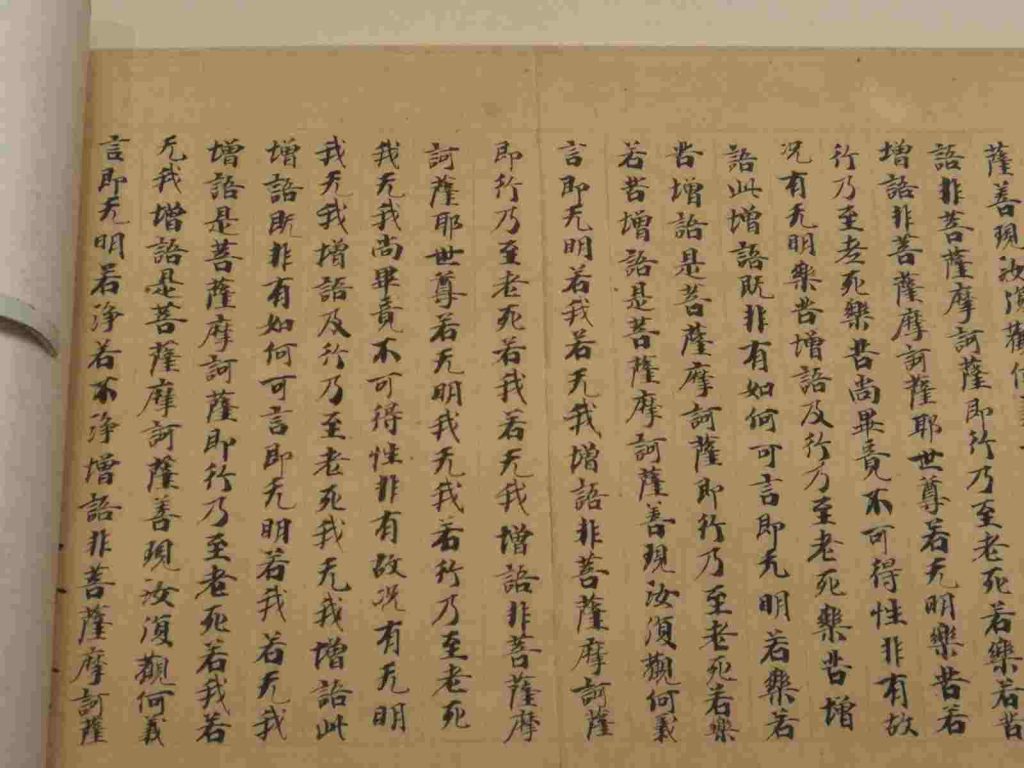 薩善現汝須觀何
語非菩薩摩訶薩即行乃至老死若樂若苦
增語非菩薩摩訶薩耶世尊若无明樂苦若
行乃至老死樂苦尚畢竟不可得性非有故
況有无明樂苦增語及行乃至老死樂苦增
語此增語既非有如何可言即无明若樂若
苦增語是菩薩摩訶薩即行乃至老死若樂
若苦增語是菩薩摩訶薩善現汝須觀何義
言即无明若我若无我增語非菩薩摩訶薩
即行乃至老死若我若无我增語非菩薩摩
訶薩耶世尊若无明我无我若行乃至老死
我无我尚畢竟不可得性非有故況有无明
我无我增語及行乃至老死我无我增語此
增語既非有如何可言即无明若我若无我
增語是菩薩摩訶薩即行乃至老死若我若
无我增語是菩薩摩訶薩善現汝須觀何義
言即无明若淨若不淨增語非菩薩摩訶薩